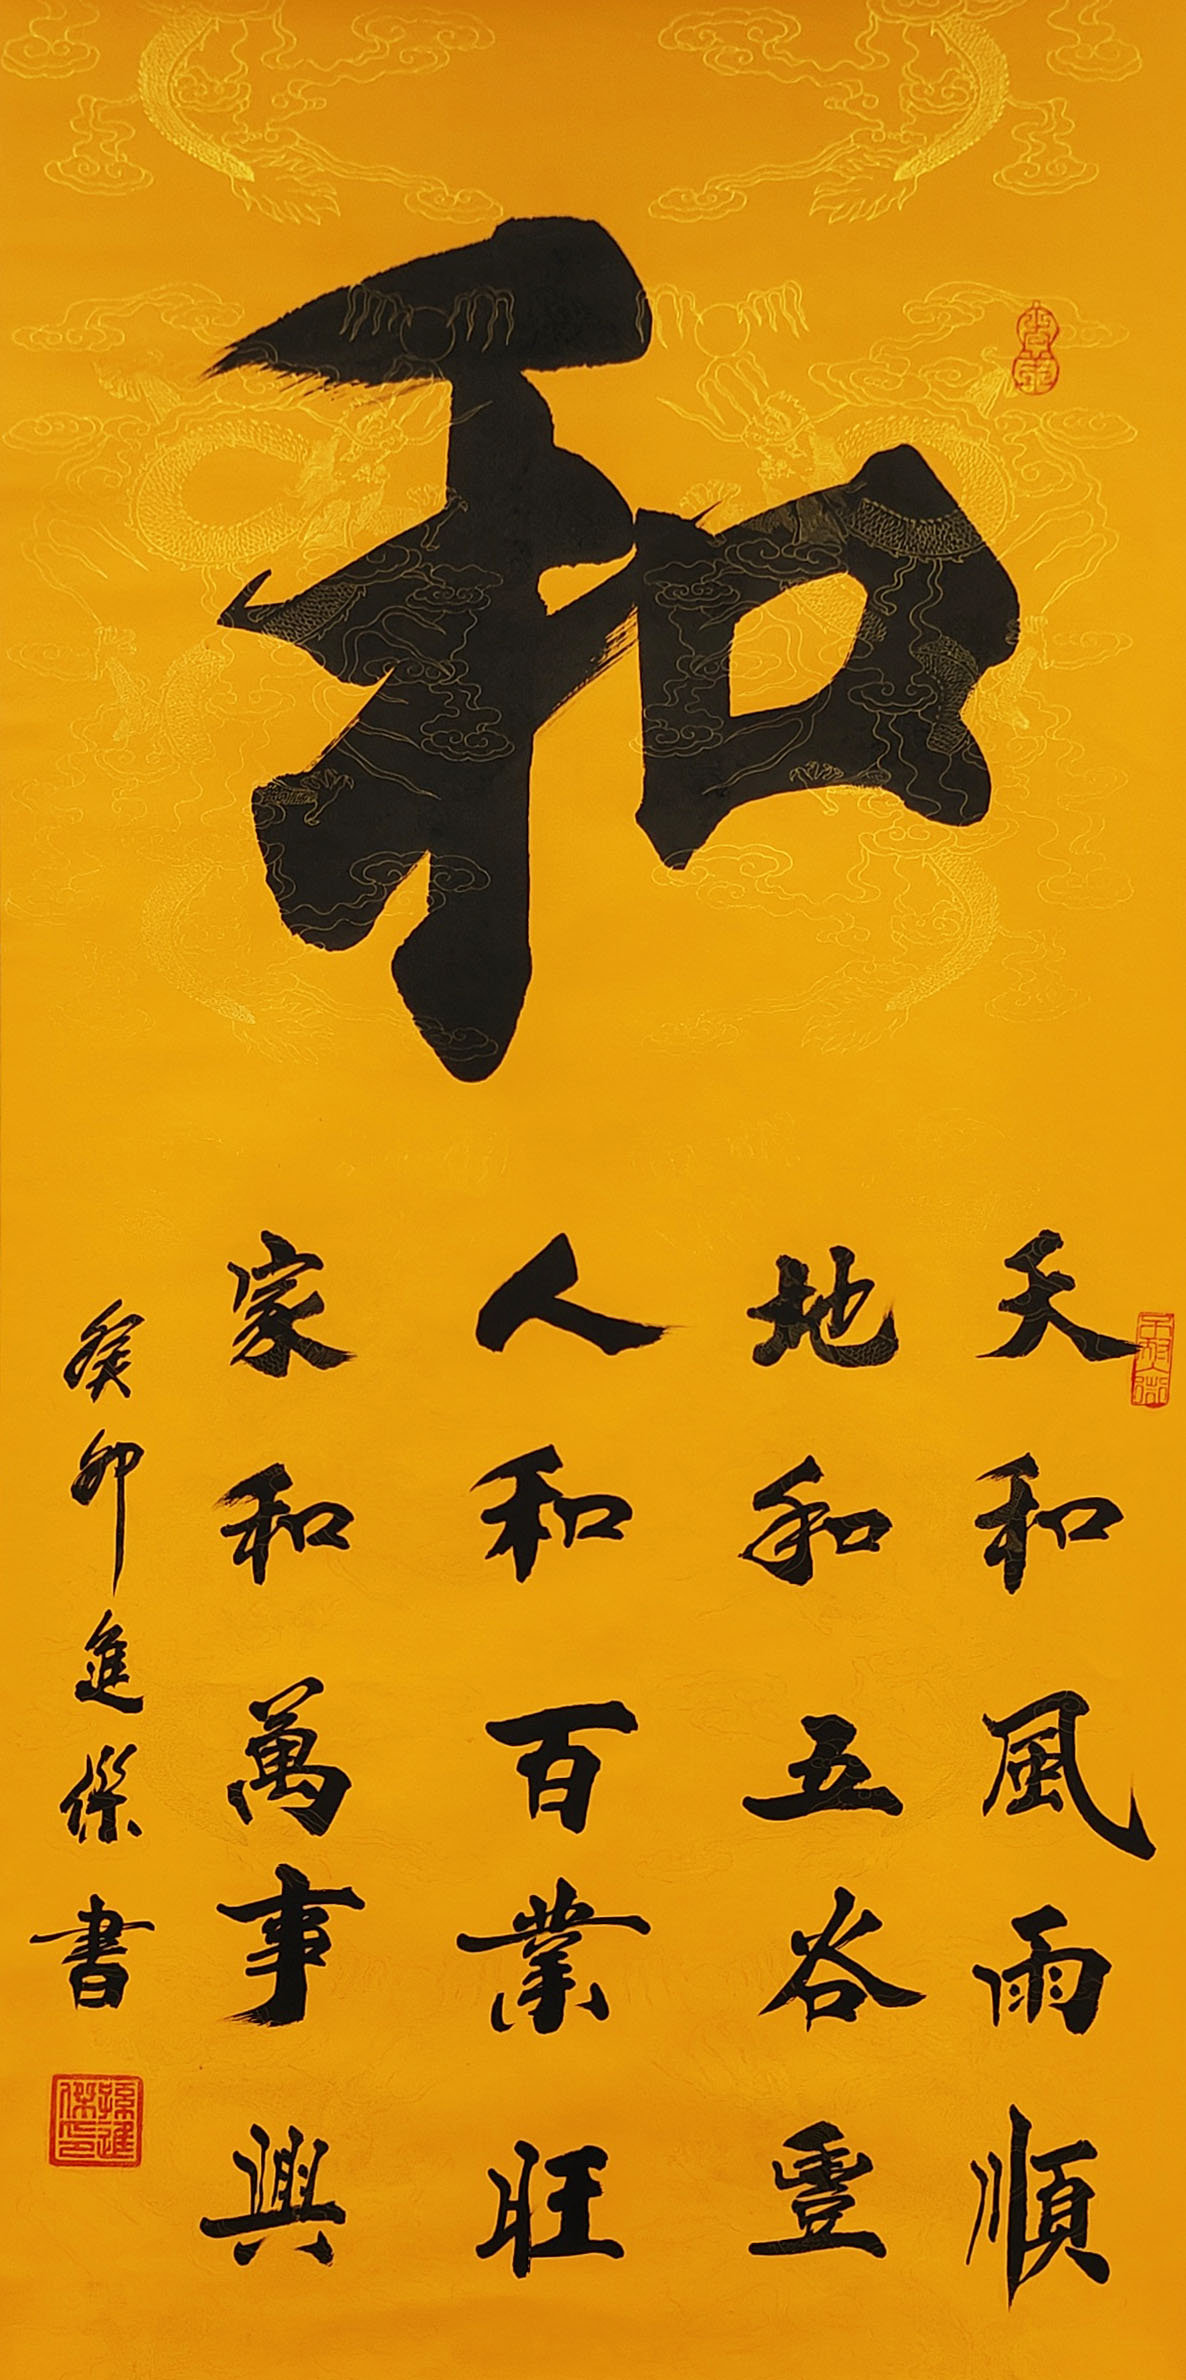 和
天和風雨順
地和五谷豐
人和百業旺
家和萬事興
癸卯進傑書
孫進傑印